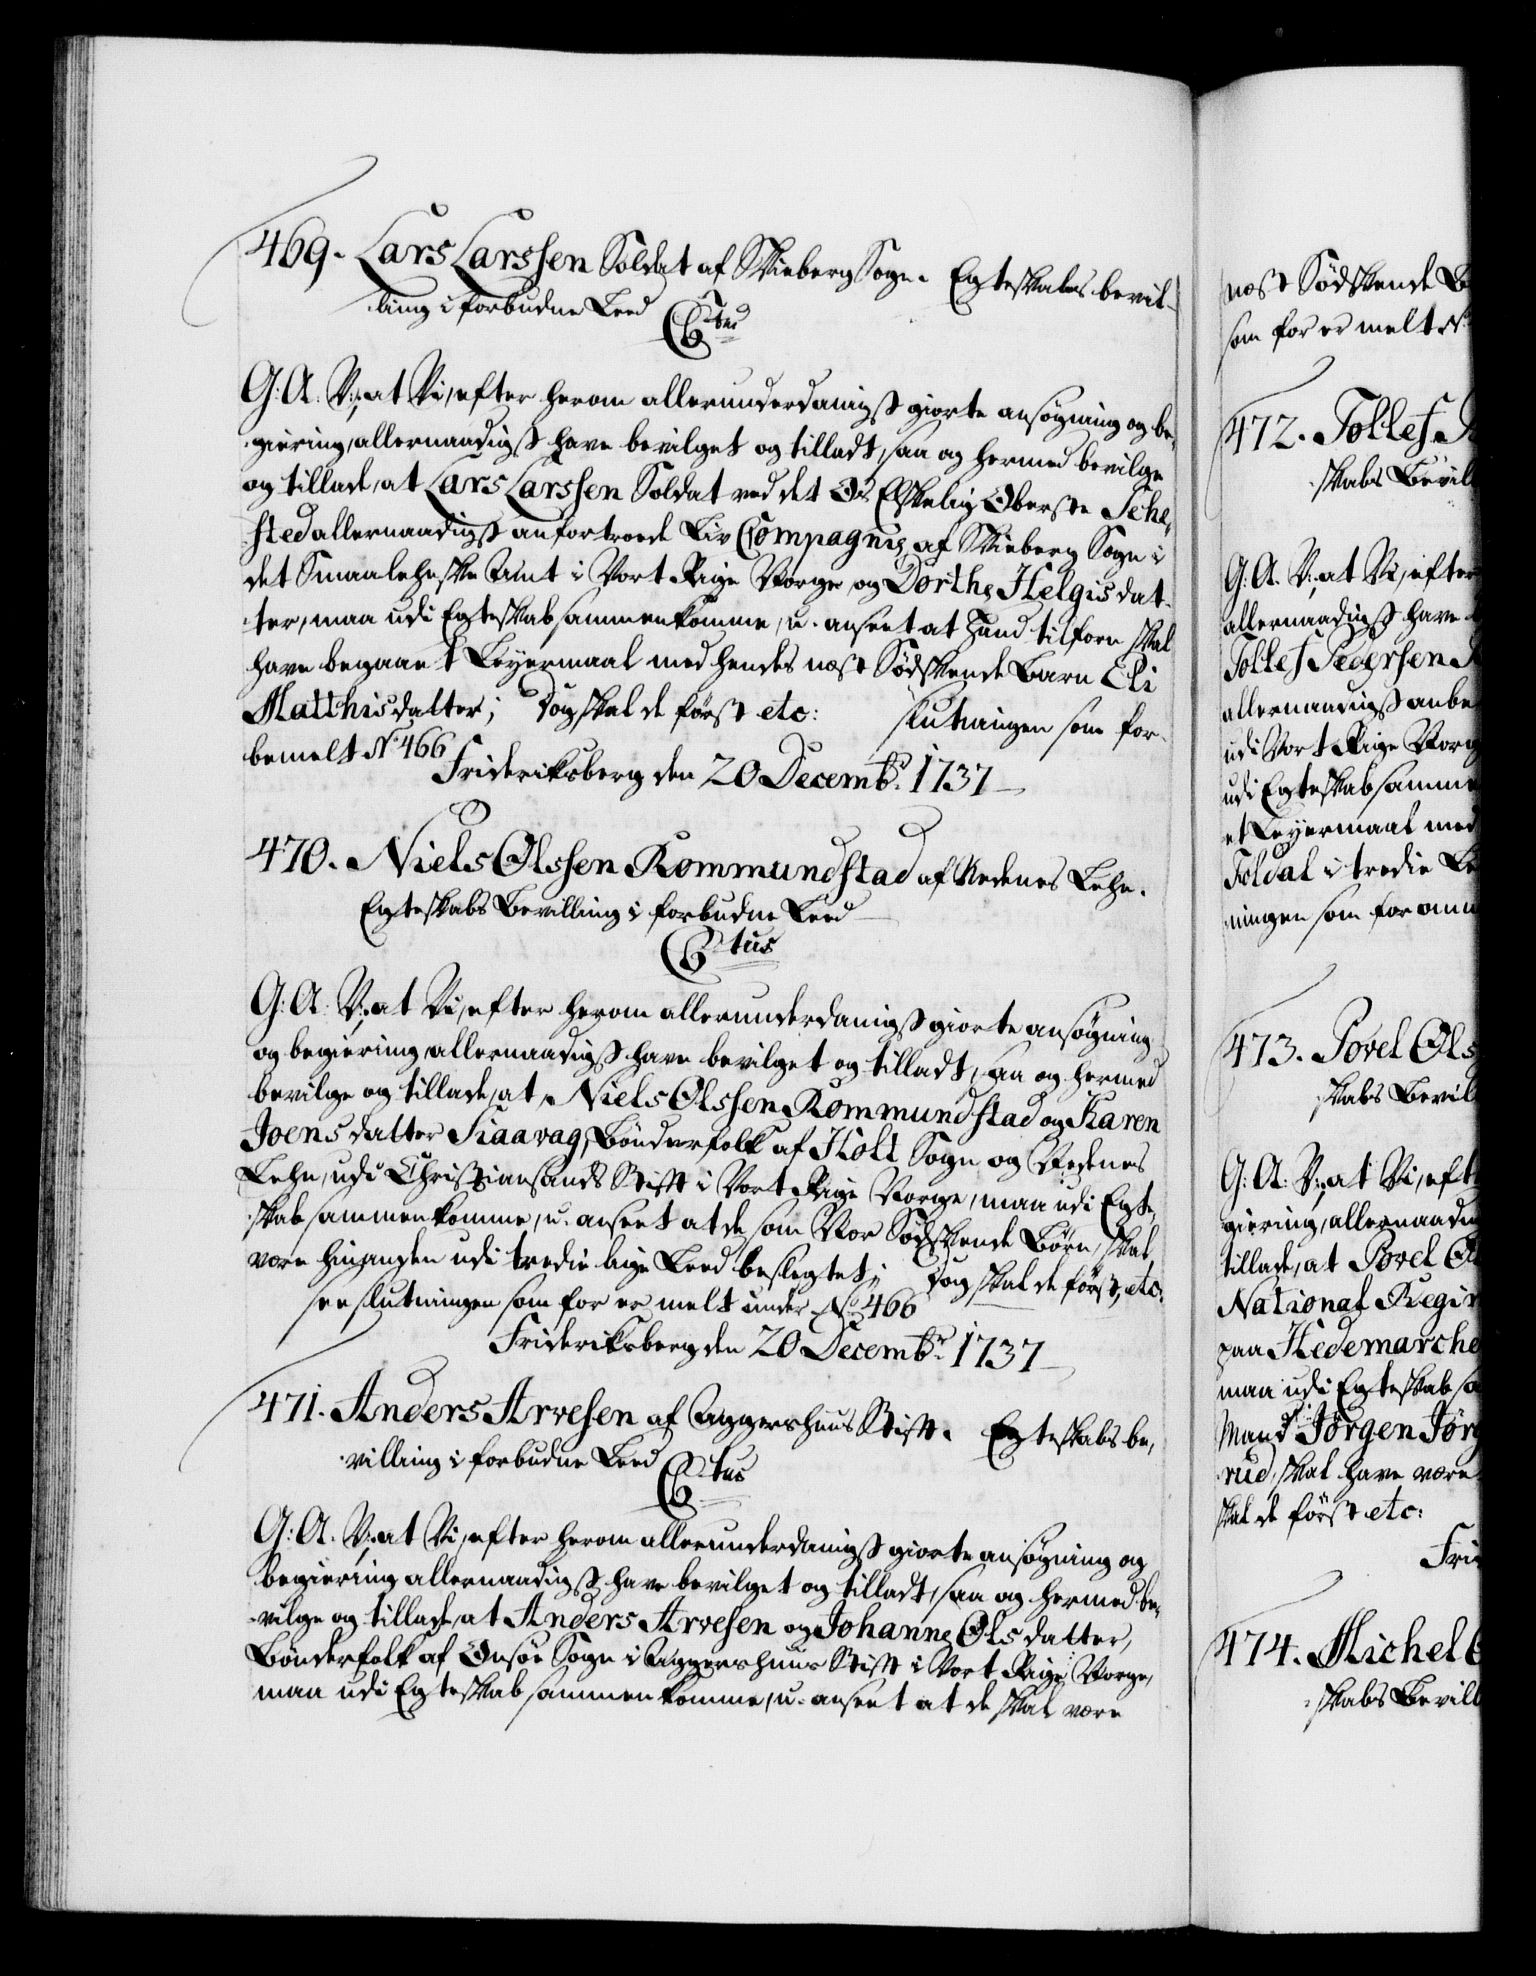 469. Lars Larssen Soldat af Skieberg Sogn. Egteskabs bevil-
ling i forbudne Leed
C6tus
G: A: V:, at Vi, efter herom allerunderdanigst giorte ansøgning og be-
giering, allernaadigst have bevilget og tilladt, saa og hermed bevilge
og tillade, at Lars Larssen Soldat ved det Os Elskelig Oberste Sche-
sted allernaadigst anfortroede Liv Compagnie af Skieberg Sogn i
det Smaalehnske Amt i Vort Rige Norge, og Dorthe Helgisdat-
ter, maa udi Egteskab sammenkomme, u-anseet at Hand tilforn skal
have begaaet Leyermaal med hendes næst Sødskende Barn Eli
Matthisdatter; Dog skal de først etc: slutningen som for-
bemelt No 466
Frideriksberg den 20 Decembr. 1737
470. Niels Olssen Rommundstad af Nedenes Lehn.
Egteskabs Bevilling i forbudne Leed
C6tus
G: A: V:, at Vi, efter herom allerunderdanigst giorte ansøgning
og begiering, allernaadigst have bevilget og tilladt, saa og hermed
bevilge og tillade, at Niels Olssen Rommundstad og Karen
Joensdatter Siaavag, Bønderfolk af Holt Sogn og Nedenes
Lehn, udi Christiansands Stift i Vort Rige Norge, maa udi Egte-
skab sammenkomme, u-anseet at de som Nær Sødskende Børn, skal
være hinanden udi tredie lige Leed beslegtet; Dog skal de først, etc:
see slutningen som før er melt under No 466
Frideriksberg den 20 Decembr. 1737
471. Anders Arvesen af Aggershuus Stift. Egteskabs be-
villing i forbudne Leed
C6tus
G: A: V:, at Vi, efter herom allerunderdanigst giorte ansøgning og
begiering allernaadigst have bevilget og tilladt, saa og hermed be-
vilge og tillade, at Anders Arvesen og Johanne Olsdatter,
Bønderfolk af Onsøe Sogn i Aggershuus Stift i Vort Rige Norge,
maa udi Egteskab sammenkomme, u-anseet at de skal være
næst Sødskende B
som for er melt N
472. Tollef
skabs Bevil
G: A: V:, at Vi, efter
allernaadigst have
Tollef Pedersen
allernaadigst anbe
udi Vort Rige Norg
udi Egteskab samme
et Leyermaal med
Foldal i tredie Le
ningen som for om
473. Povel Ols
skabs Bevil
G: A: V:, at Vi, eft
giering, allernaadig
tillade, at Povel O
National Regi
paa Hedemarche
maa udi Egteskab sa
Mand Jørgen Jørg
rud, skal have være
skal de først etc:
Fri
474. Michel
skabs Bevill